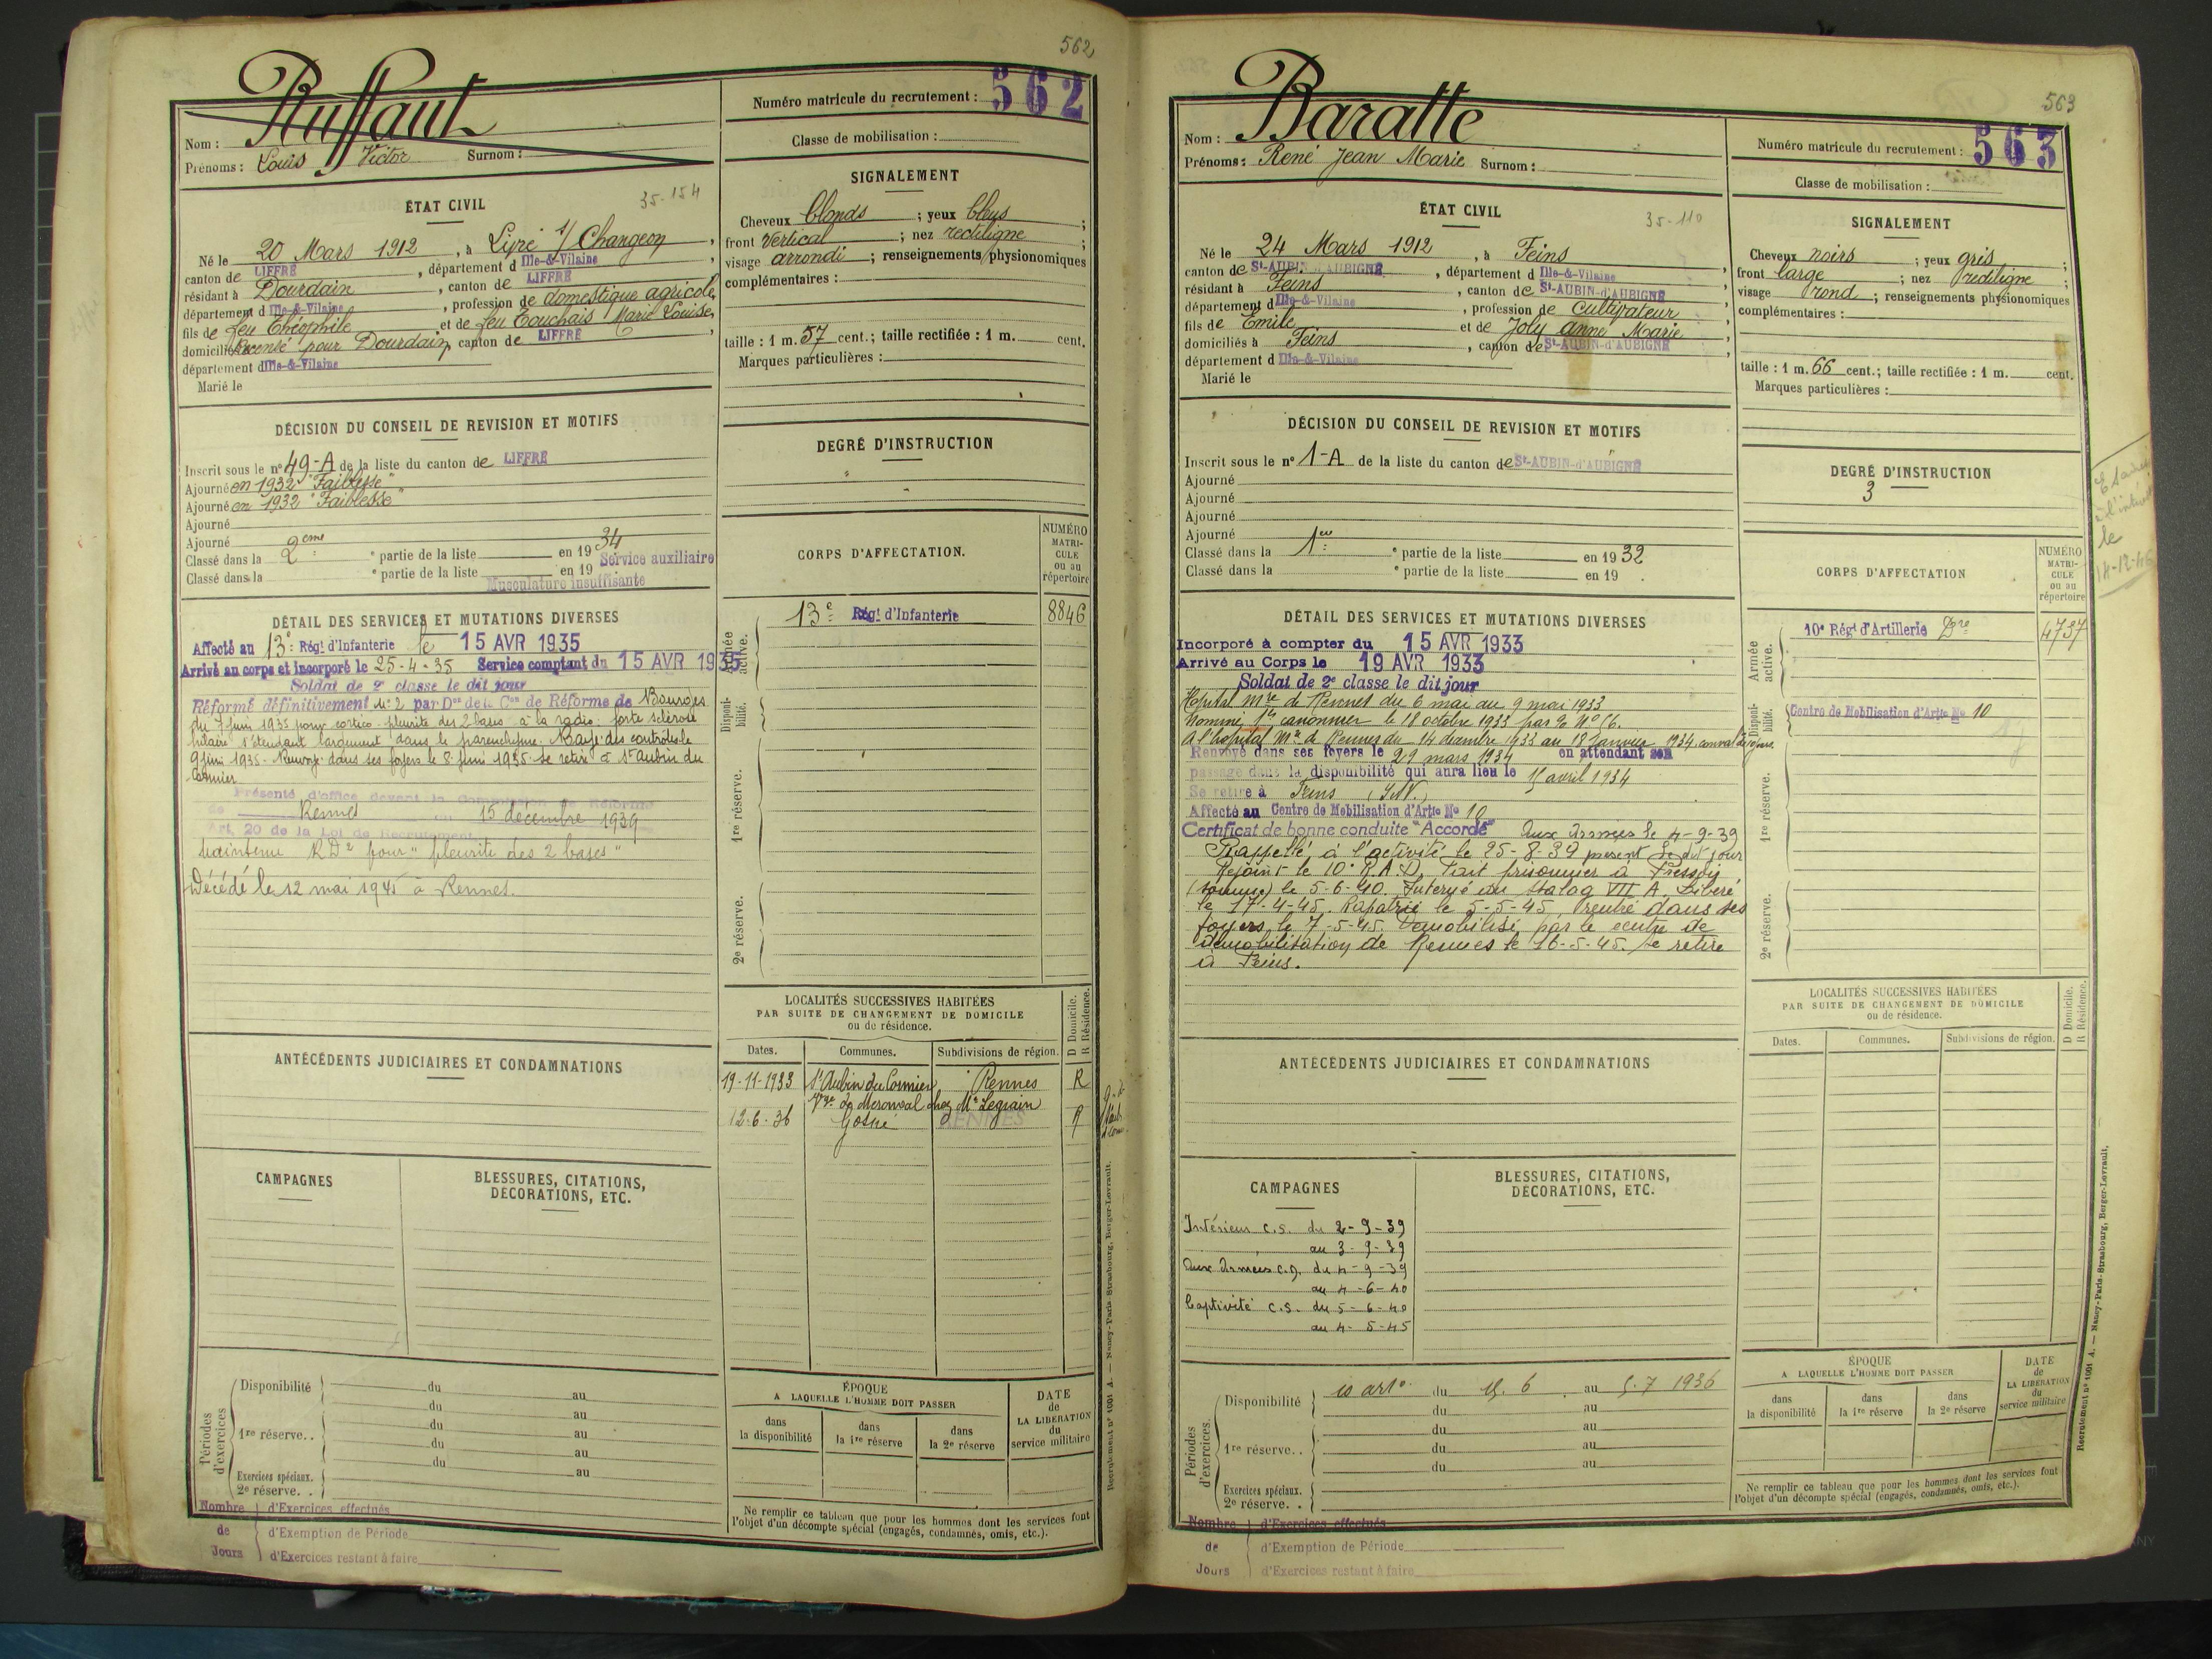 562
Nom : Ruffaut
Prénoms : Louis Victor Surnom :
Numéro matricule du recrutement : 562
Classe de mobilisation :
ÉTAT CIVIL
35-154
Né le 20 Mars 1912, à Livré s/ Changeon,
canton de LIFFRÉ, département d Ille-&-Vilaine,
résidant à Dourdain, canton de LIFFRÉ
département d Ille-&-Vilaine, profession de domestique agricole,
fils de feu Théophile et de feu Touchais Marie Louise,
domiciliés Recensé pour Dourdain, canton de LIFFRÉ,
département d Ille-&-Vilaine
Marié le
SIGNALEMENT
Cheveux blonds ; yeux bleus ;
front vertical ; nez rectiligne ;
visage arrondi ; renseignements physionomiques
complémentaires :
taille : 1 m. 57 cent.; taille rectifiée : 1 m. cent.
Marques particulières :
DÉCISION DU CONSEIL DE REVISION ET MOTIFS
Inscrit sous le n° 49-A de la liste du canton de LIFFRÉ
Ajourné en 1932 "Faiblesse"
Ajourné en 1932 "Faiblesse"
Ajourné
Ajourné
Classé dans la 2eme e partie de la liste en 19 34
Service auxiliaire
Classé dans la e partie de la liste en 19
Musculature insuffisante
DEGRÉ D'INSTRUCTION
CORPS D'AFFECTATION.
NUMÉRO MATRI-CULE ou au répertoire
Armée active.
13e Régt d'Infanterie 8846
Disponi-bilité.
1re réserve.
2e réserve.
DÉTAIL DES SERVICES ET MUTATIONS DIVERSES
Affecté au 13e Régt d'Infanterie le 15 AVR 1935
Arrivé au corps et incorporé le 25-4-35 Service comptant du 15 AVR 1935
Soldat de 2e classe le dit jour
Réformé définitivement N°2 par Don de la Con de Réforme de Bourges
du 7 juin 1935 pour cortico-pleurite des 2 bases à la radio: forte sclérose
hilaire s'étendant largement dans le parenchyme. Rayé des contrôles le
9 juin 1935. Renvoyé dans ses foyers le 8 juin 1935 se retire à St Aubin du
Cormier
Présenté d'office devant la Commission de Réforme
de Rennes 15 décembre 1939
Art. 20 de la Loi de Recrutement
Maintenu RD2 pour "pleurite des 2 bases"
Décédé le 12 mai 1945 à Rennes.
LOCALITÉS SUCCESSIVES HABITÉES
PAR SUITE DE CHANGEMENT DE DOMICILE
ou de résidence.
D Domicile.
R Résidence.
Dates. Communes. Subdivisions de région.
19-11-1933 St Aubin du Cormier Rennes R
chez Mr Legrain
12-6-36 Gosné RENNES R
ANTÉCÉDENTS JUDICIAIRES ET CONDAMNATIONS
CAMPAGNES
BLESSURES, CITATIONS,
DÉCORATIONS, ETC.
Périodes d'exercices
Disponibilité du au
du au
1re réserve.. du au
du au
du au
Exercices spéciaux. au
2e réserve. .
ÉPOQUE
A LAQUELLE L'HOMME DOIT PASSER
dans la disponibilité
dans la 1re réserve
dans la 2e réserve
DATE de LA LIBÉRATION du service militaire
Ne remplir ce tableau que pour les hommes dont les services font
l'objet d'un décompte spécial (engagés, condamnés, omis, etc.).
Nombre de Jours
d'Exercices effectués
d'Exemption de Période
d'Exercices restant à faire
Recrutement n° 1001 A. — Nancy-Paris-Strasbourg, Berger-Levrault.
563
Nom : Baratte
Prénoms : René Jean Marie Surnom :
Numéro matricule du recrutement : 563
Classe de mobilisation :
ÉTAT CIVIL
35-110
Né le 24 Mars 1912, à Feins,
canton de St-AUBIN-d'AUBIGNÉ, département d Ille-&-Vilaine,
résidant à Feins, canton de St-AUBIN-d'AUBIGNÉ
département d Ille-&-Vilaine, profession de Cultivateur,
fils de Emile et de Joly anne Marie,
domiciliés à Feins, canton de St-AUBIN-d'AUBIGNÉ,
département d Ille-&-Vilaine
Marié le
SIGNALEMENT
Cheveux noirs ; yeux gris ;
front large ; nez rectiligne ;
visage rond ; renseignements physionomiques
complémentaires :
taille : 1 m. 66 cent.; taille rectifiée : 1 m. cent.
Marques particulières :
DÉCISION DU CONSEIL DE REVISION ET MOTIFS
Inscrit sous le n° 1-A de la liste du canton de St-AUBIN-d'AUBIGNÉ
Ajourné
Ajourné
Ajourné
Ajourné
Classé dans la 1ere e partie de la liste en 19 32
Classé dans la e partie de la liste en 19 .
DEGRÉ D'INSTRUCTION
3
le
18-12-46
CORPS D'AFFECTATION
NUMÉRO MATRI-CULE ou au répertoire
Armée active.
10e Régt d'Artillerie Dre 4737
Disponi-bilité.
Centre de Mobilisation d'Artie No 10
1re réserve.
2e réserve.
DÉTAIL DES SERVICES ET MUTATIONS DIVERSES
Incorporé à compter du 15 AVR 1933
Arrivé au Corps le 19 AVR 1933
Soldat de 2e classe le dit jour
Hopital Mre de Rennes du 6 mai au 9 mai 1933
Nommé 1er canonnier le 18 octobre 1933 par
A l'hopital Mre de Rennes du 14 décembre 1933 au 18 Janvier 1934. conval
Renvoyé dans ses foyers le 29 mars 1934 en attendant son
passage dans la disponibilité qui aura lieu le 15 avril 1934
Se retire à Feins (I.&V.)
Affecté au Centre de Mobilisation d'Artie No 10
Certificat de bonne conduite "Accordé" Aux Armées le 4-9-39
Rappelé à l'activité le 25-8-39 présent le dit jour
Rejoint le 10e R.A.D. Fait prisonnier à Fressoy
(Somme) le 5-6-40. Interné au Stalag VII A. Libéré
le 17-4-45. Rapatrié le 5-5-45, rentré dans ses
foyers le 7-5-45. Démobilisé par le centre de
démobilisation de Rennes le 16-5-45. Se retire
à Feins.
LOCALITÉS SUCCESSIVES HABITÉES
PAR SUITE DE CHANGEMENT DE DOMICILE
ou de résidence.
D Domicile.
R Résidence.
Dates. Communes. Subdivisions de région.
ANTÉCÉDENTS JUDICIAIRES ET CONDAMNATIONS
CAMPAGNES
Intérieur C.S. du 2-9-39
au 3-9-39
Aux Armées C.D. du 4-9-39
au 4-6-40
Captivité C.S. du 5-6-40
au 4-5-45
BLESSURES, CITATIONS,
DÉCORATIONS, ETC.
Périodes d'exercices.
Disponibilité 10 art. du 15.6 au 5.7 1936
du au
1re réserve.. du au
du au
du au
Exercices spéciaux.
2e réserve. .
ÉPOQUE
A LAQUELLE L'HOMME DOIT PASSER
dans la disponibilité
dans la 1re réserve
dans la 2e réserve
DATE de LA LIBÉRATION du service militaire
Ne remplir ce tableau que pour les hommes dont les services font
l'objet d'un décompte spécial (engagés, condamnés, omis, etc.).
Nombre de Jours
d'Exercices effectués
d'Exemption de Période
d'Exercices restant à faire
Recrutement n° 1001 A. — Nancy-Paris-Strasbourg, Berger-Levrault.